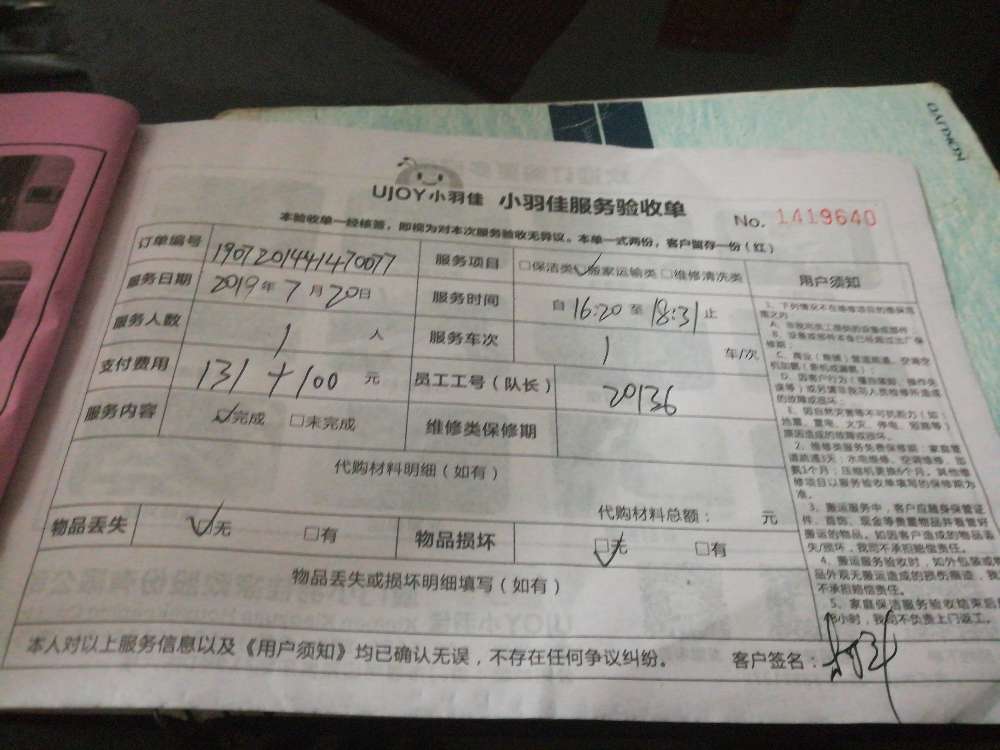 NOKLIVO
UJOY小羽佳 小羽佳服务验收单
No. 1419640
本验收单一经核签，即视为对本次服务验收无异议。本单一式两份，客户留存一份（红）
订单编号 190720144147 0077 服务项目 □保洁类 ☑搬家运输类 □维修清洗类 用户须知
服务日期 2019年7月20日 服务时间 自16:20至18:31止
服务人数 1 人 服务车次 1 车/次
支付费用 131+100 元 员工工号（队长） 20136
服务内容 ☑完成 □未完成 维修类保修期
代购材料明细（如有）
代购材料总额： 元
物品丢失 ☑无 □有 物品损坏 ☑无 □有
物品丢失或损坏明细填写（如有）
本人对以上服务信息以及《用户须知》均已确认无误，不存在任何争议纠纷。 客户签名：
1、下列情况不在维修项目的维保范
围之内
A、非我司员工提供的设备或部件
B、设备或部件本身已经超过出厂保
修期；
E、因自然灾害等不可抗能力（如：
地震、雷电、火灾、停电、短路等）
原因造成的故障或损坏。
2、维修类服务免费保修期：家庭管
道疏通3天；水电维修、空调维修、加
氨1个月；压缩机更换6个月。其他维
修项目以服务验收单填写的保修期为
准。
3、搬运服务中，客户应随身保管证
件、首饰、现金等贵重物品并看管好
搬运的物品。如因客户造成的物品丢
失/损坏，我司不承担赔偿责任。
4、搬运服务验收时，如外包装或物
品外观无搬运造成的损伤痕迹，我
不承担赔偿责任。
5、家庭保洁服务验收结束后
48小时，我司不负责上门返工。